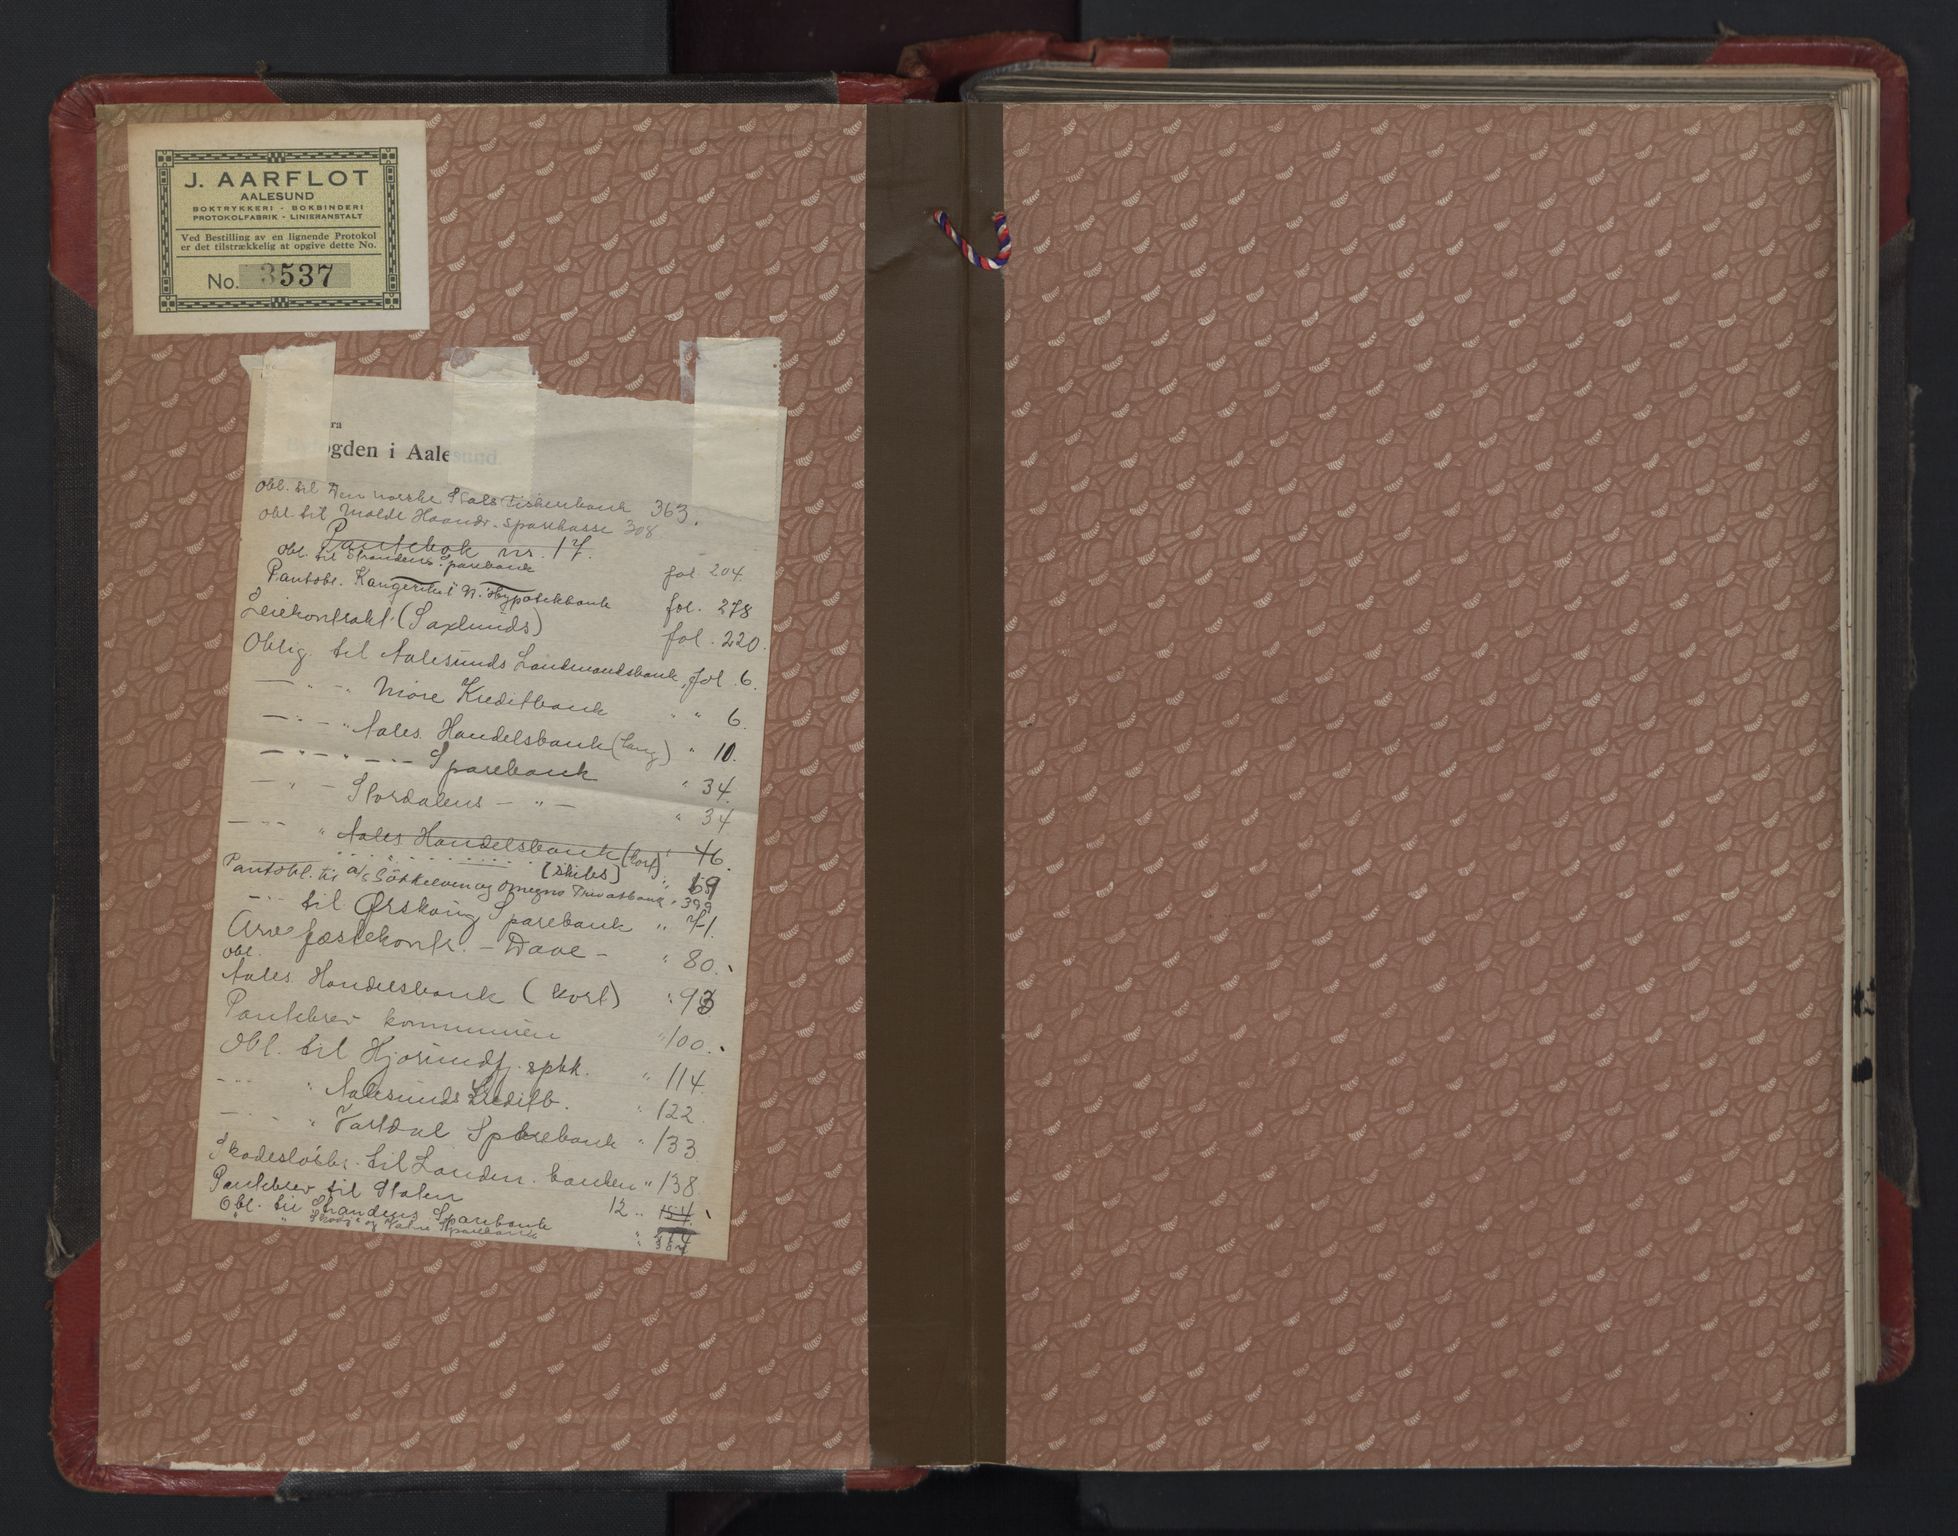 J. AARFLOT
AALESUND
BOKTRYKKERI - BOKBINDERI
PROTOKOLFABRIK - LINIERANSTALT
Ved Bestilling av en lignende Protokol
er det tilstrækkelig at opgive dette No.
No. 3537
ra
ogden i Aalesund
Obl. til Den norske Stats Fiskerbank 363.
Obl. til Molde Haandv. sparekasse 308.
Pantebok nr. 17.
Obl. til Strandens Sparebank fol. 204.
Pantobl. N. Hypotekbank fol. 278
Leiekontrakt (Saxlunds) fol. 220.
Oblig. til Aalesunds Landmandsbank, fol. 6.
— " — " Møre Kreditbank " " 6.
— " — " Aales. Handelsbank (lang) " 10.
— " — " — " — Sparebank " 34.
— " — Stordalens — " — " 34
— " — " Aales Handelsbank (kort) " 46.
(skibs) " 69
Pantobl. til a/s Søkkelven og Omegns Privatbank " 399
— " — til Ørskoug Sparebank " 71.
Arvefæstekontr. — Dave — " 80.
Obl.
Aales. Handelsbank (kort) " 93
Pantebrev kommunen " 100.
Obl. til Hjørundfj. spbk. " 114.
— " — " Aalesunds Kreditb. " 122.
— " — " Vartdal Sparebank " 133
Skadesløsbr. til Landm. banken " 138.
Pantebrev til Staten 12 " 154.
Obl. til Strandens Sparebank
" " Skodje og Vatne Sparebank " 387